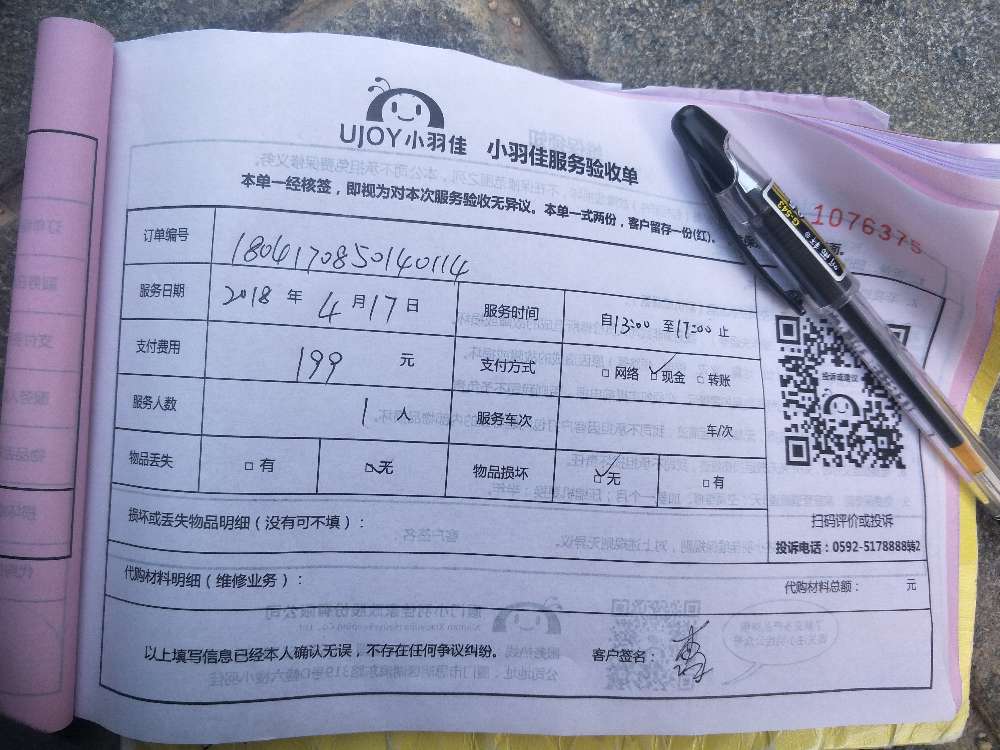 UJOY小羽佳 小羽佳服务验收单
本单一经核签，即视为对本次服务验收无异议。本单一式两份，客户留存一份(红)。
1076375
订单编号 1804170850140114
服务日期 2018 年 4 月 17 日 服务时间 自13:00 至17:00 止
支付费用 199 元 支付方式 □ 网络 ☑ 现金 □ 转账
服务人数 1 人 服务车次 车/次
物品丢失 □ 有 ☑ 无 物品损坏 ☑ 无 □ 有
投诉或建议
扫码评价或投诉
投诉电话：0592-5178888转2
损坏或丢失物品明细（没有可不填）：
代购材料明细（维修业务）： 代购材料总额： 元
以上填写信息已经本人确认无误，不存在任何争议纠纷。 客户签名：